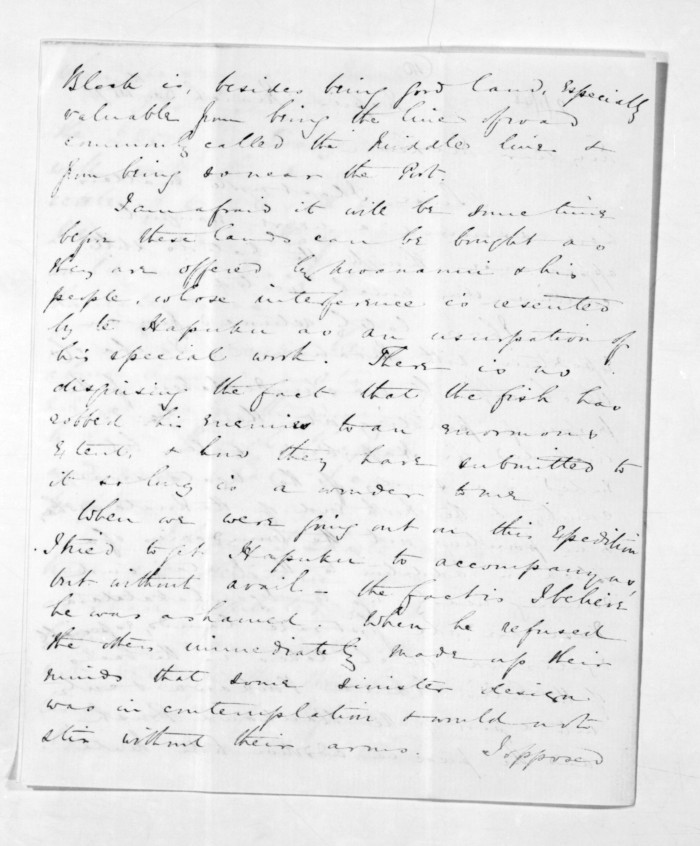 Block is, besides being good land, Especially
valuable from being the line of road
commonly called the Middle line &
from being so near the Port.
I am afraid it will be some time
before these lands can be bought as
they are offered by Moananui & his
people, whose interference is resented
by te Hapuku as an usurpation of
his special work. There is no
disguising the fact that the fish has
robbed his enemies to an enormous
Extent, & how they have submitted to
it so long is a wonder to me
When we were going out on this Expedition
I tried to get Hapuku to accompany us,
but without avail - the fact is I believe
he was ashamed. When he refused
the others immediately made up their
minds that some sinister design
was in contemplation & would not
stir without their arms. I opposed